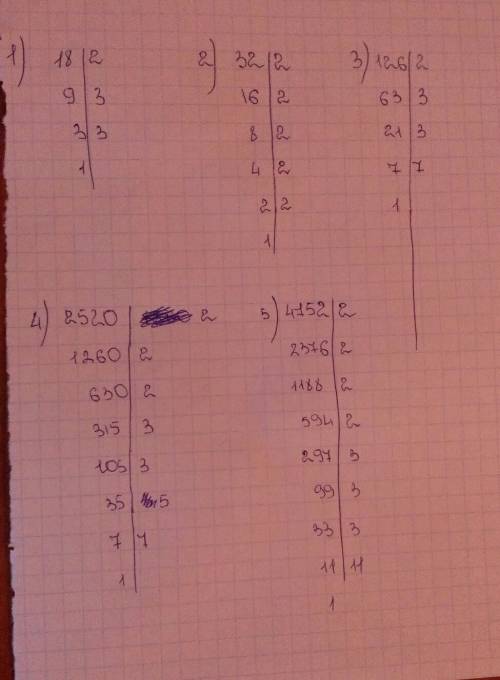 1) 18 | 2
9 | 3
3 | 3
1 |
2) 32 | 2
16 | 2
8 | 2
4 | 2
2 | 2
1 |
3) 126 | 2
63 | 3
21 | 3
7 | 7
1 |
4) 2520 | 2
1260 | 2
630 | 2
315 | 3
105 | 3
35 | 5
7 | 7
1 |
5) 4752 | 2
2376 | 2
1188 | 2
594 | 2
297 | 3
99 | 3
33 | 3
11 | 11
1